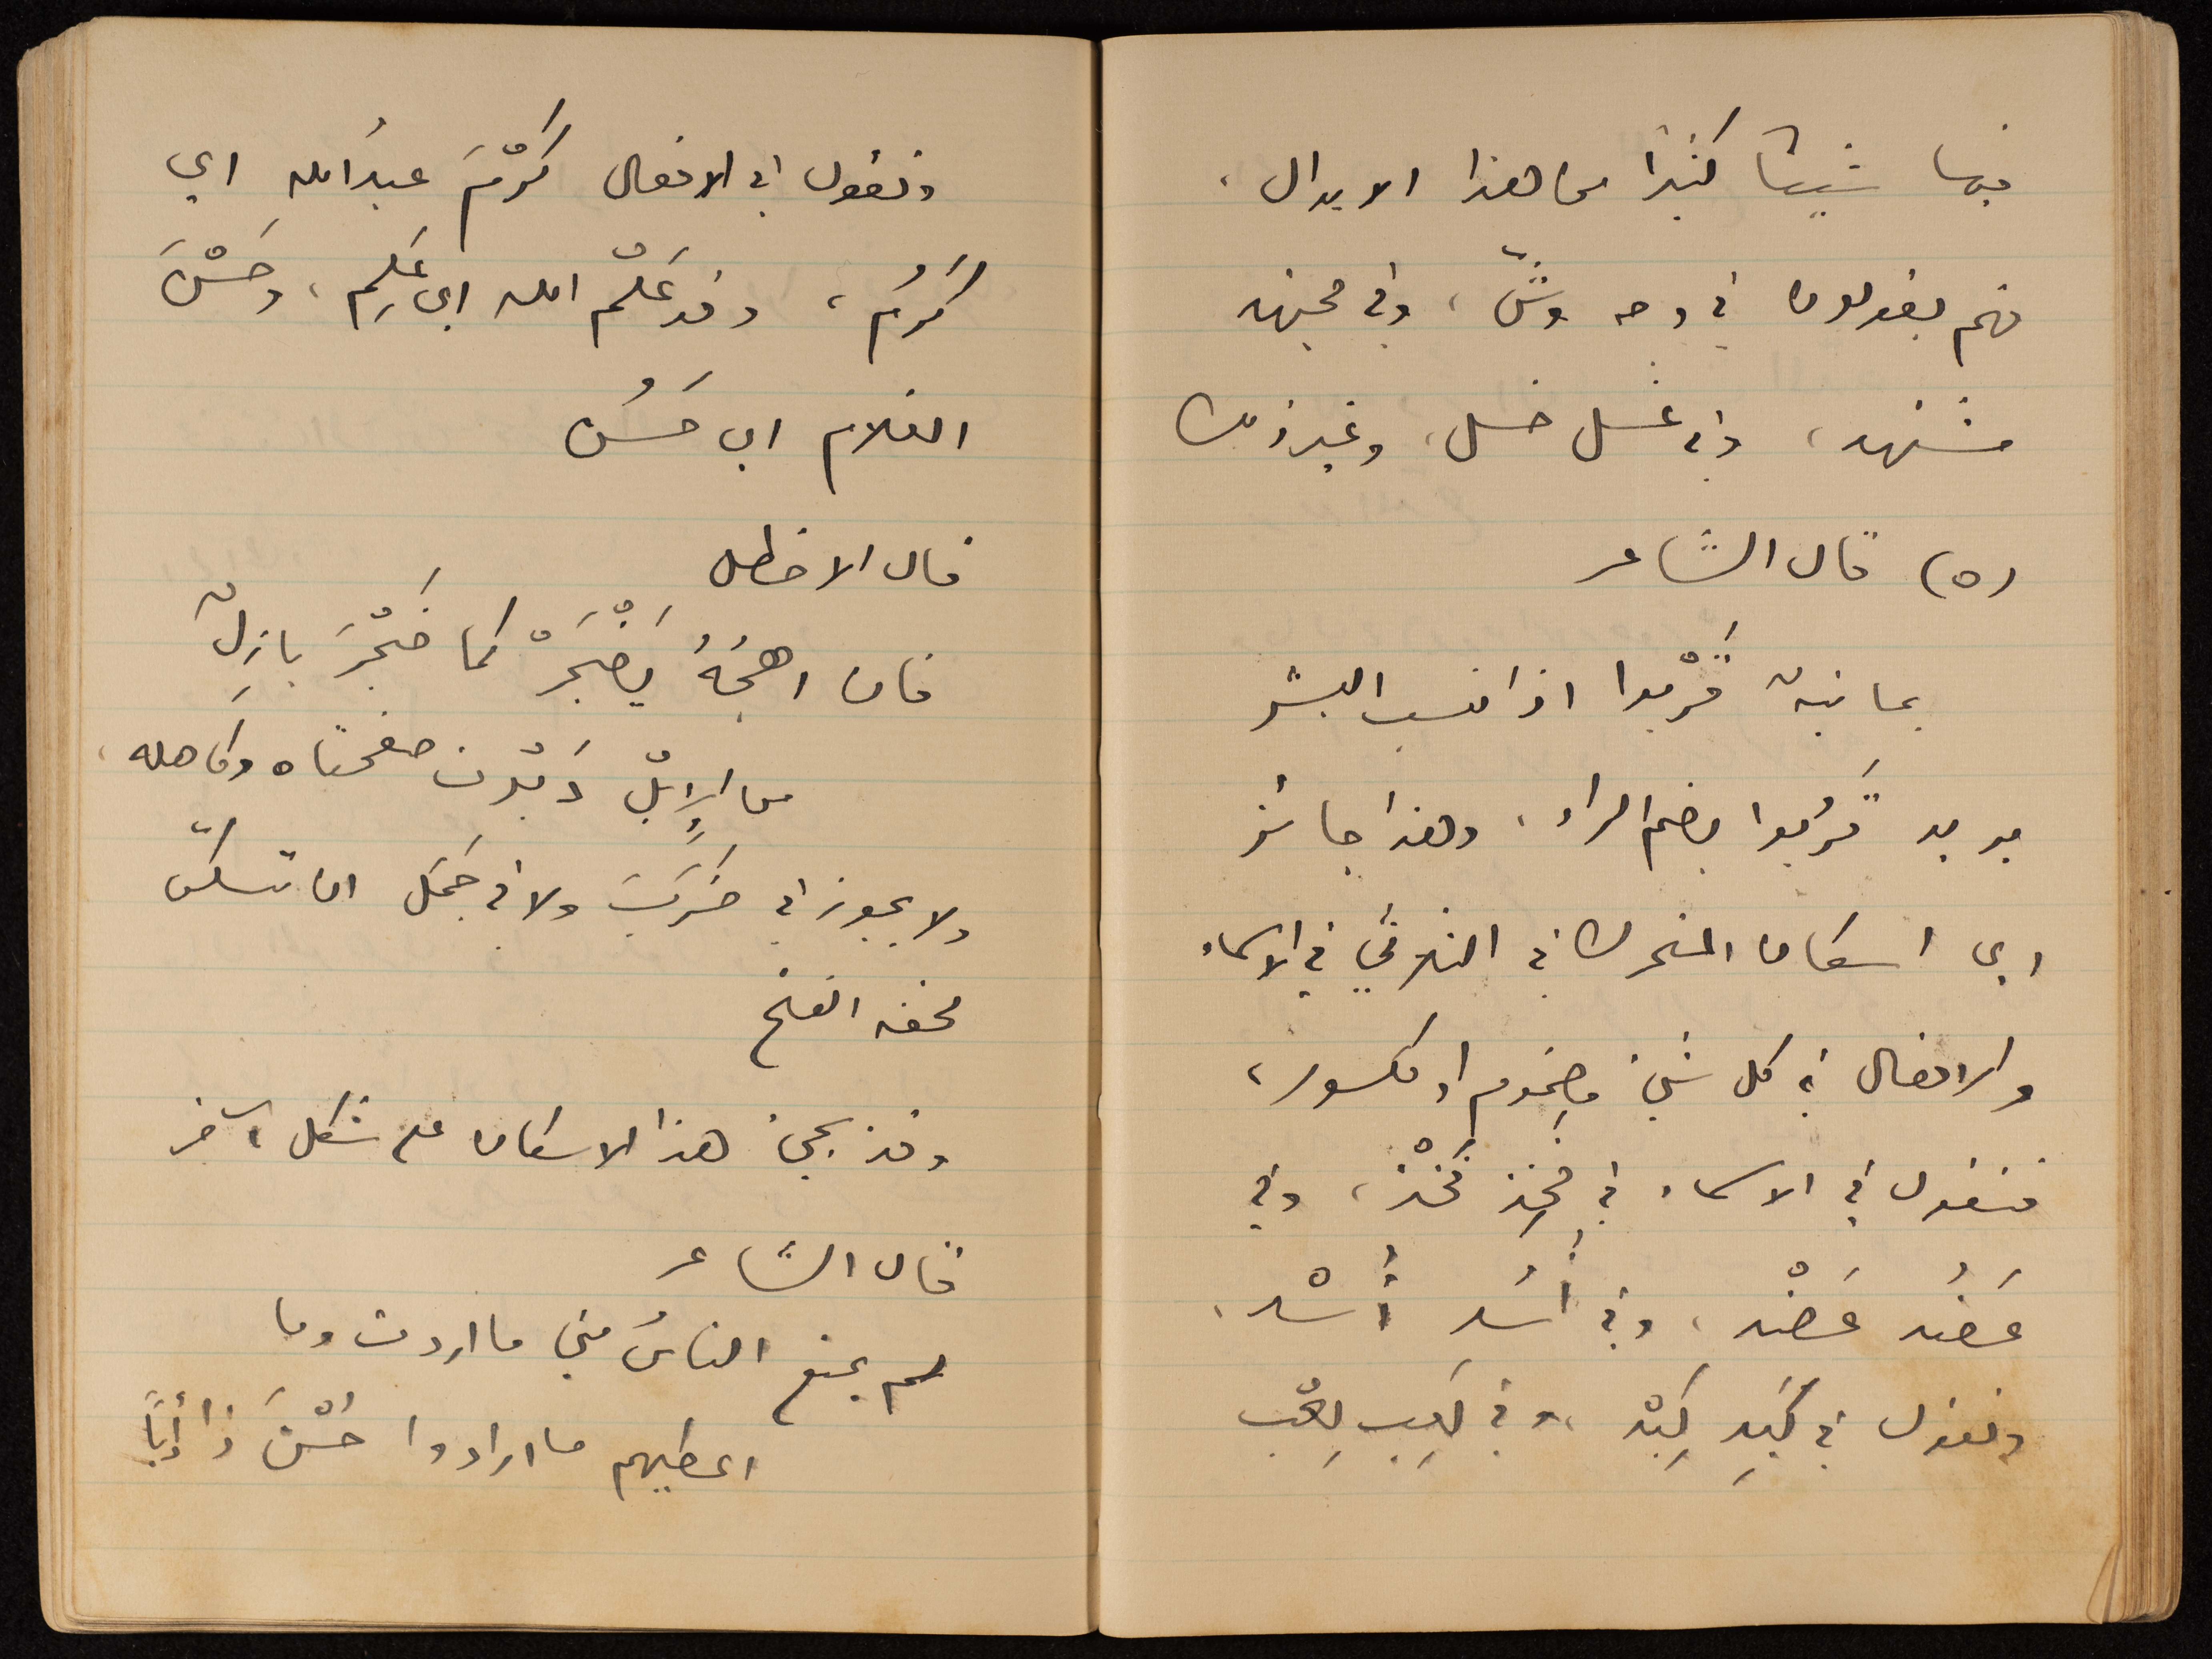 فيها شيئا كثيرًا من هذا الابدال،
فهم يقولون في وجه وشّ، وفي مجتهد
مشتهد، وفي غسل خسل، وغير ذلك
(٥) قال الشاعر
يمانيةٌ قَرْبوا اذا نسب البشر
يريد قَرُبوا بضم الراء، وهذا جائز
اي اسكان المتحرك في الثلاثي في الاسماء
والافعال في كل شيء مضموم او مكسور،
فتقول في الاسماء في فَخِذ فَخْذ، وفي
عَضُد عَضْد، وفي أُسُد أُسْد،
وتقول في كَبِد كِبْد، وفي لَعِب لِعْب
وتقول في الافعال كَرْمَ عبدُ الله اي
كَرُم، وقد عَلْم الله اي عَلِم، وحَسْنَ
الغلام اي حَسُن
قال الاخطل
فان اهجُهُ يَضْجَرْ كما ضَجْرَ بازِلٌ
من الاِبْل دَبْرت صفحتاه وكاهله،
ولا يجوز في ضَرَبَ ولا في جَمَل ان تسكّن
لخفة الفتح
وقد يجيء هذا الاسكان على شكل آخر
قال الشاعر
لم يمنع الناسُ مني ما اردت وما
اعطيهم ما ارادوا حُسْنَ ذا أدَبًا